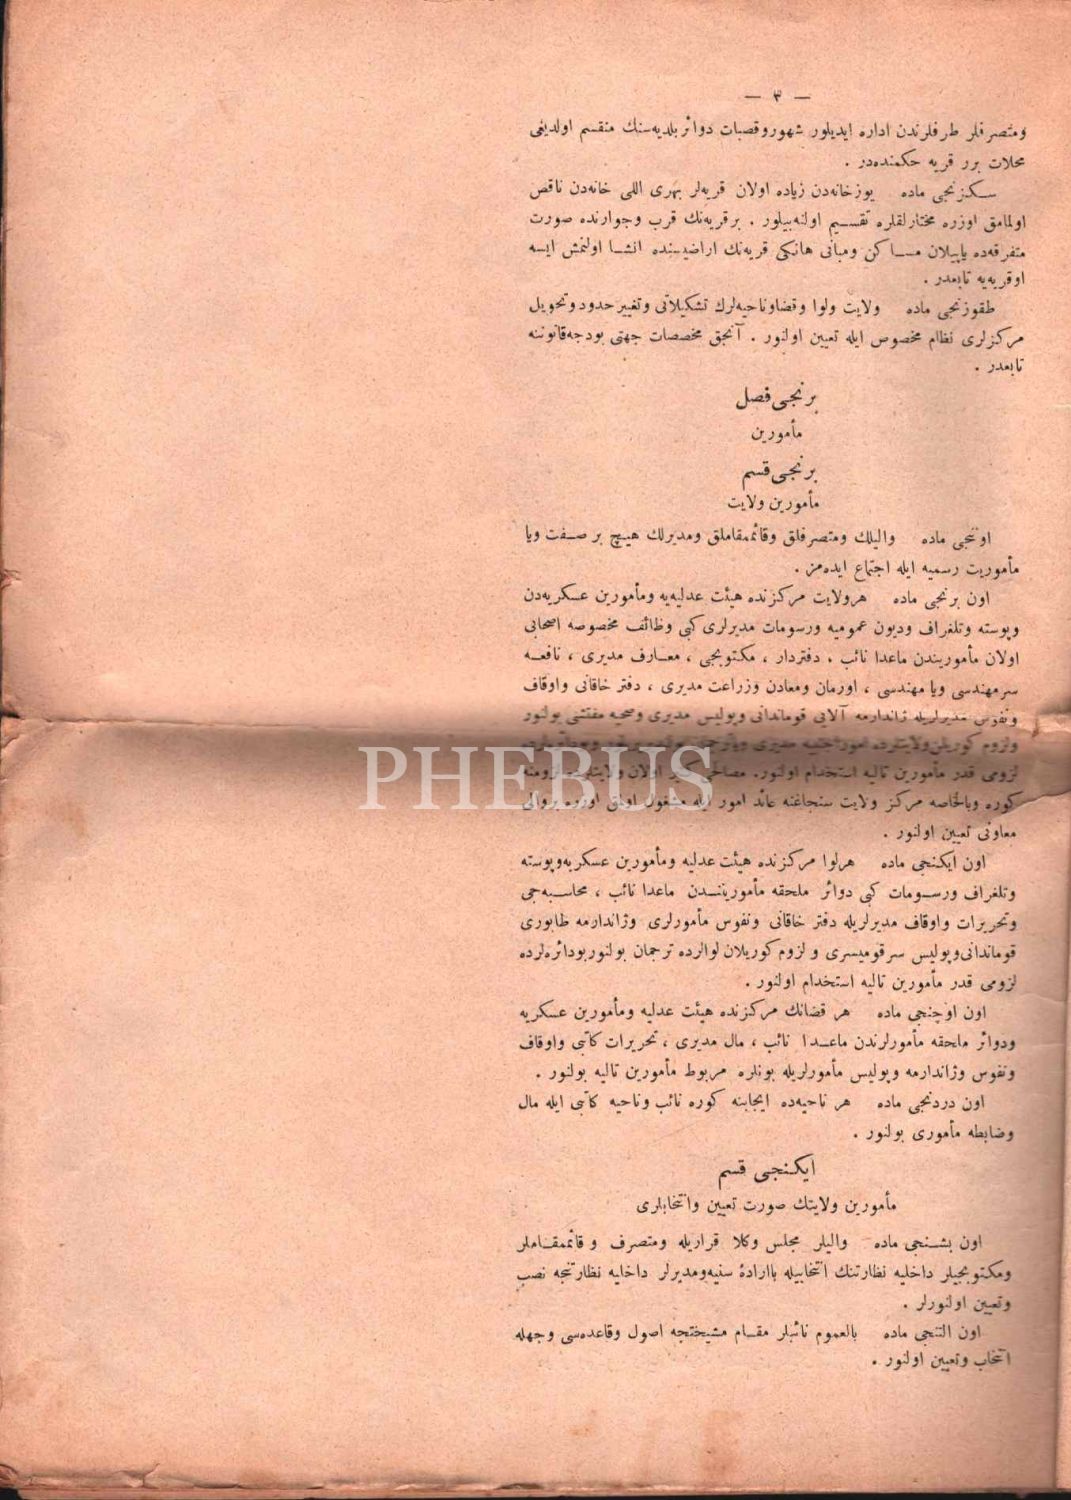 — ٣ —
ومتصرفلر طرفلرندن اداره ایدیلور شهور وقصبات دوائر بلدیه‌سنك منقسم اولدیغی
محلات برر قریه حکمنده‌در .
سکزنجی ماده یوزخانه‌دن زیاده اولان قریه‌لر بهری اللی خانه‌دن ناقص
اولمامق اوزره مختارلقلره تقسیم اولنه‌بیلور . برقریه‌نك قرب وجوارنده صورت
متفرقه‌ده یاپیلان مساکن ومبانی هانکی قریه‌نك اراضیسنده انشا اولنمش ایسه
اوقریه‌یه تابعدر .
طقوزنجی ماده ولایت ولوا وقضا وناحیه‌لرك تشکیلاتی وتغییر حدود وتحویل
مرکزلری نظام مخصوص ایله تعیین اولنور . آنجق مخصصات جهتی بودجه قانوننه
تابعدر .
برنجی فصل
مأمورین
برنجی قسم
مأمورین ولایت
اوننجی ماده والیلك ومتصرفلق وقائممقاملق ومدیرلك هیچ بر صفت ویا
مأموریت رسمیه ایله اجتماع ایده‌مز .
اون برنجی ماده هرولایت مرکزنده هیئت عدلیه‌یه ومأمورین عسکریه‌دن
وپوسته وتلغراف ودیون عمومیه ورسومات مدیرلری کبی وظائف مخصوصه اصحابی
اولان مأموریندن ماعدا نائب ، دفتردار ، مکتوبجی ، معارف مدیری ، نافعه
سرمهندسی ویا مهندسی ، اورمان ومعادن وزراعت مدیری ، دفتر خاقانی واوقاف
ونفوس مدیرلریله ژاندارمه آلایی قوماندانی وپولیس مدیری وصحیه مفتشی بولنور
ولزوم کوریلن ولایتلرده امور اجنبیه مدیری
لزومی قدر مأمورین تالیه استخدام اولنور. مصالحی اولان
کوره وبالخاصه مرکز ولایت سنجاغنه عائد امور ایله مشغول اولمق اوزره بروالی
معاونی تعیین اولنور .
اون ایکنجی ماده هرلوا مرکزنده هیئت عدلیه ومأمورین عسکریه وپوسته
وتلغراف ورسومات کبی دوائر ملحقه مأموریندن ماعدا نائب ، محاسبه‌جی
وتحریرات واوقاف مدیرلریله دفتر خاقانی ونفوس مأمورلری وژاندارمه طابوری
قوماندانی وپولیس سرقومیسری و لزوم کوریلان لوالرده ترجمان بولنور بودائره‌لرده
لزومی قدر مأمورین تالیه استخدام اولنور .
اون اوچنجی ماده هر قضانك مرکزنده هیئت عدلیه ومأمورین عسکریه
ودوائر ملحقه مأمورلرندن ماعدا نائب ، مال مدیری ، تحریرات کاتبی واوقاف
ونفوس وژاندارمه وپولیس مأمورلریله بونلره مربوط مأمورین تالیه بولنور .
اون دردنجی ماده هر ناحیه‌ده ایجابنه کوره نائب وناحیه کاتبی ایله مال
وضابطه مأموری بولنور .
ایکنجی قسم
مأمورین ولایتك صورت تعیین وانتخابلری
اون بشنجی ماده والیلر مجلس وکلا قراریله ومتصرف و قائممقاملر
ومکتوبجیلر داخلیه نظارتنك انتخابیله باارادۀ سنیه ومدیرلر داخلیه نظارتنجه نصب
وتعیین اولنورلر .
اون التنجی ماده بالعموم نائبلر مقام مشیختجه اصول وقاعده‌سی وجهله
انتخاب وتعیین اولنور .
PHEBUS